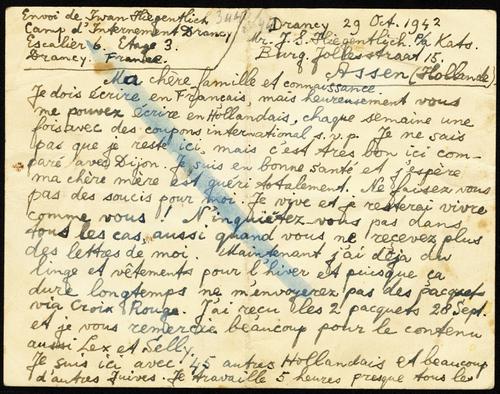 Envoi de Iwan Hiegentlich
Camp d'Internement Drancy
Escalier 6. Etage 3.
Drancy. France.
Drancy 29 Oct. 1942
Mr. J. S. Hiegentlich. P/a Kats.
Burg. Jollesstraat 15.
Assen (Hollande)
Ma chère famille et connaissance.
Je dois écrire en Français, mais heureusement vous
me pouvez écrire en Hollandais, chaque semaine une
fois avec des coupons international s.v.p. Je ne sais
pas que je reste ici. mais c'est tres bon ici com-
paré avec Dijon. Je suis en bonne santé et j'espère
ma chère mère est guéri totalement. Ne faisez vous
pas des soucis pour moi. Je vive et je resterai vivre
comme vous ! N'inquiétez-vous pas dans
tous les cas, aussi quand vous ne recevez plus
des lettres de moi. Maintenant j'ai déja du
linge et vêtements pour l'hiver et puisque ça
dure longtemps ne m'envoyerez pas des pacquets
via Croix Rouge. J'ai reçu les 2 pacquets 28 Sept.
et je vous remercie beaucoup pour le contenu
aussi Lex et Selly.
Je suis ici avec 45 autres Hollandais et beaucoup
d'autres Juives. Je travaille 5 heures presque tous les